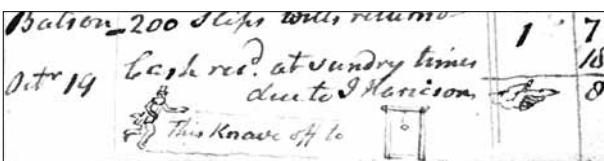 Batson - 200 Slips with returns 1 7
18
Octr 19 Cash recd. at sundry times
due to J Harrison 8
This Knave off to